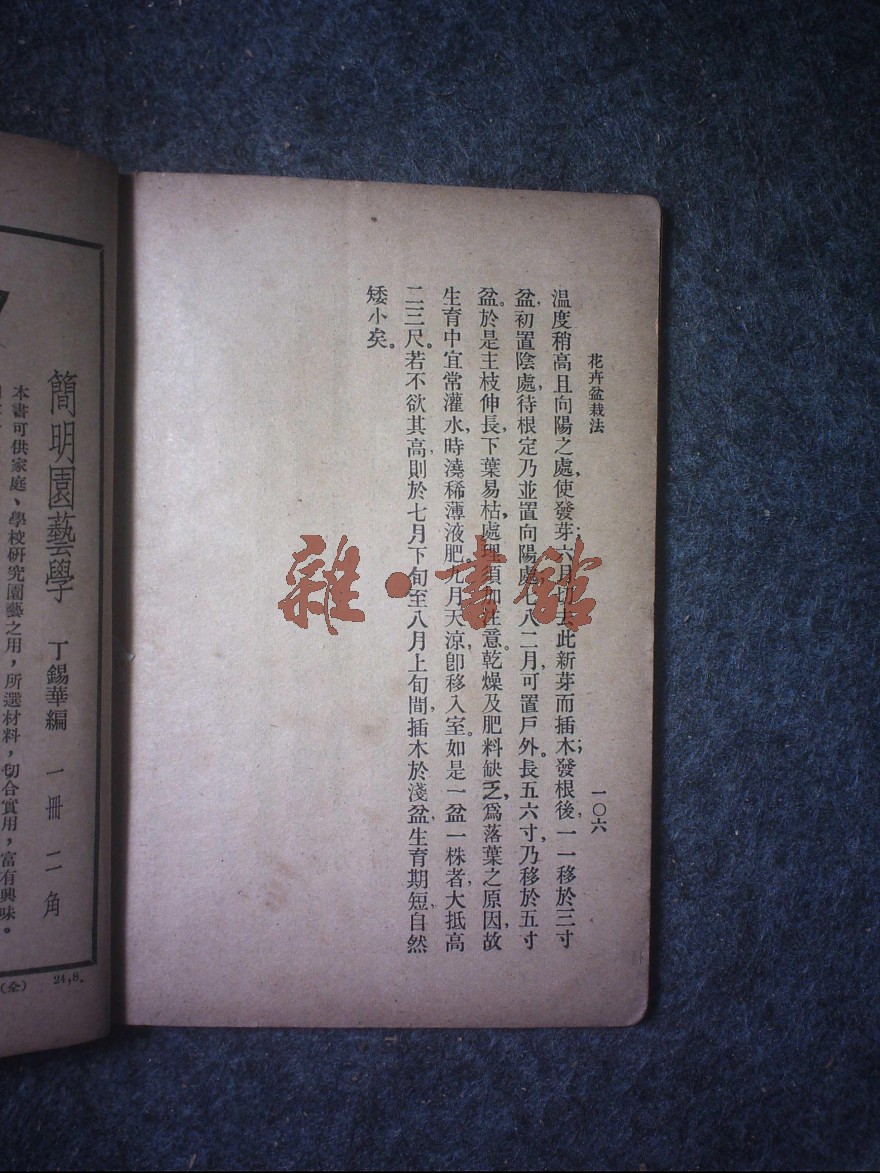 花卉盆栽法
一〇六
温度稍高且向陽之處，使發芽；六月切去此新芽而插木；發根後，一一移於三寸
盆，初置陰處，待根定，乃並置向陽處。七八二月，可置戶外。長五六寸，乃移於五寸
盆。於是主枝伸長，下葉易枯，處理須加注意。乾燥及肥料缺乏，爲落葉之原因，故
生育中宜常灌水，時澆稀薄液肥。九月天涼，卽移入室。如是一盆一株者，大抵高
二三尺。若不欲其高，則於七月下旬至八月上旬間，插木於淺盆，生育期短，自然
矮小矣。
雜·書館
簡明園藝學 丁錫華編 一冊二角
本書可供家庭、學校研究園藝之用，所選材料，切合實用，富有興味。
(全) 24,8.